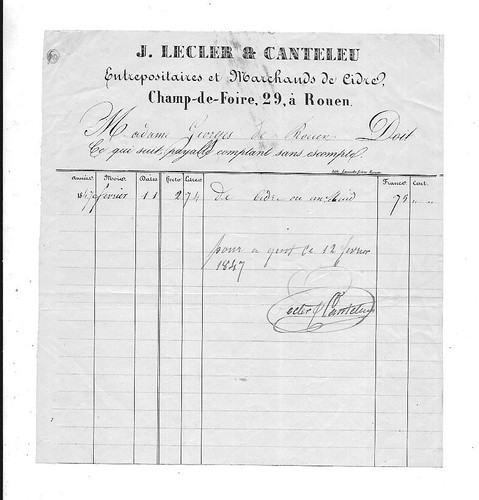 J. LECLER & CANTELEU
Entrepositaires et Marchands de Cidre,
Champ-de-Foire, 29, à Rouen.
Madame Georges de Rouen Doit
Ce qui suit, payable comptant sans escompte.
Année Mois Dates Hecto Litres Francs Cent.
1847 février 11 2 74 de cidre 75 " "
pour a quit ce 12 fevrier
1847
Lecler & Canteleu